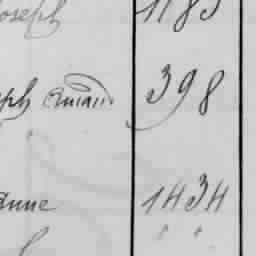 Joseph 1185
eph Amand. 398
Anne 1434